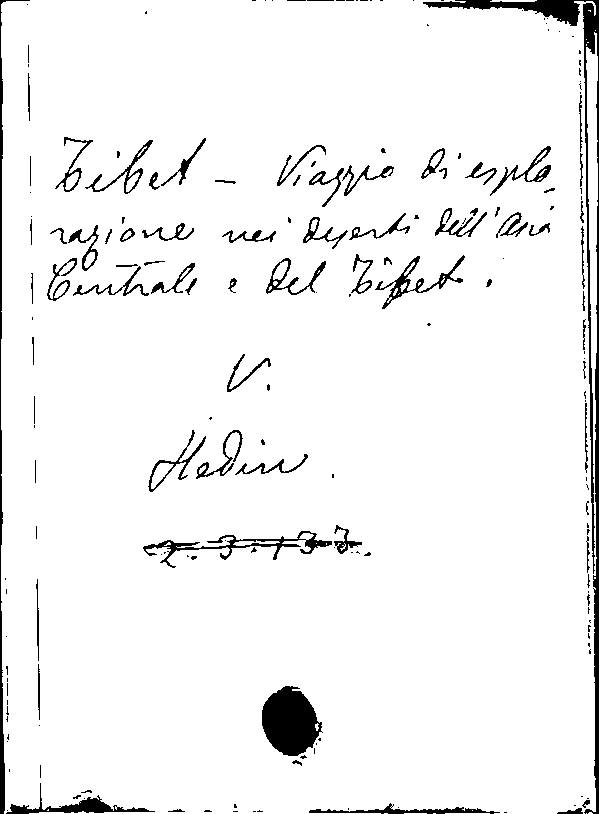 Tibet - Viaggio di esplo-
razione nei deserti dell'Asia
Centrale e del Tibet.
V.
Hedin.
2.3.133.